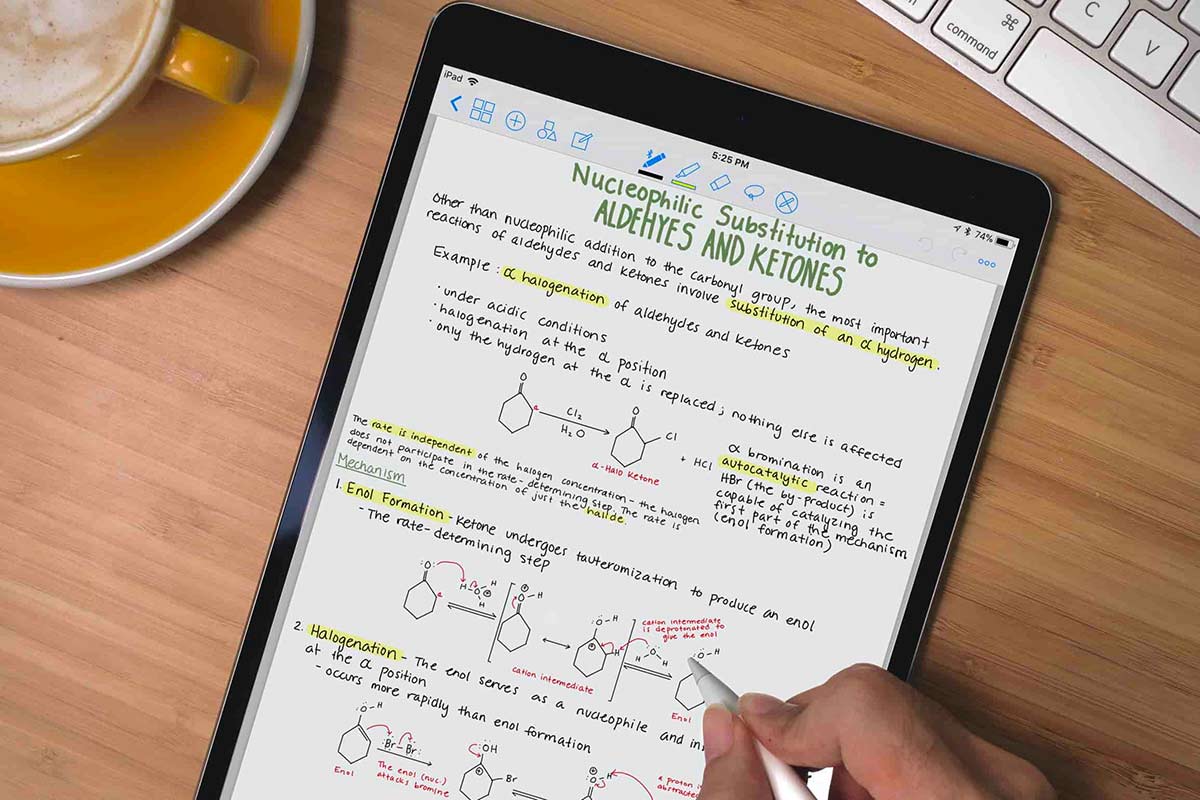 command
C
V
iPad
5:25 PM
74%
Nucleophilic Substitution to
ALDEHYES AND KETONES
Other than nucleophilic addition to the carbonyl group, the most important
reactions of aldehydes and ketones involve substitution of an α hydrogen.
Example: α halogenation of aldehydes and ketones
· under acidic conditions
· halogenation at the α position
· only the hydrogen at the α is replaced; nothing else is affected
O
α
Cl2
H2O
O
Cl
+ HCl
α-Halo Ketone
α bromination is an
autocatalytic reaction =
HBr (the by-product) is
capable of catalyzing the
first part of the mechanism
(enol formation)
The rate is independent of the halogen concentration - the halogen
does not participate in the rate-determining step. The rate is
dependent on the concentration of just the halide.
Mechanism
1. Enol Formation - Ketone undergoes tauteromization to produce an enol
- The rate-determining step
:O:
α
H-O-H
H
O-H
:O-H
H
cation intermediate
cation intermediate
is deprotonated to
give the enol
H
O
H
:O-H
Enol
2. Halogenation - The enol serves as a nucleophile and
at the α position
- occurs more rapidly than enol formation
:O-H
Enol
:Br-Br:
The enol (nuc.)
attacks bromine
:OH
Br
O-H
a proton
abstracted